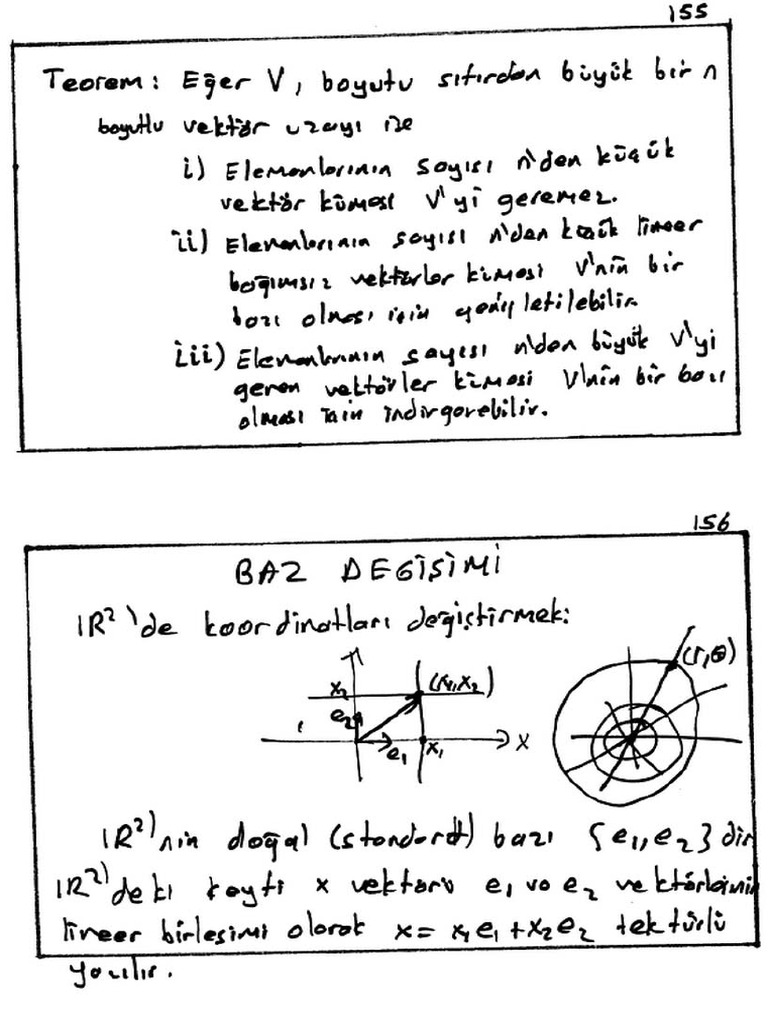 155
Teorem: Eğer V, boyutu sıfırdan büyük bir n
boyutlu vektör uzayı ise
i) Elemanlarının sayısı n'den küçük
vektör kümesi V'yi geremez.
ii) Elemanlarının sayısı n'den küçük lineer
bağımsız vektörler kümesi V'nin bir
bazı olması için genişletilebilir.
iii) Elemanlarının sayısı n'den büyük V'yi
geren vektörler kümesi V'nin bir bazı
olması için indirgenebilir.
156
BAZ DEĞİŞİMİ
IR²'de koordinatları değiştirmek:
x₂ (x₁,x₂) (r,θ)
e₂
e₁ x₁ x
IR²'nin doğal (standard) bazı {e₁,e₂} dir
IR²'deki keyfi x vektörü e₁ ve e₂ vektörlerinin
lineer birleşimi olarak x = x₁e₁+x₂e₂ tektürlü
yazılır.